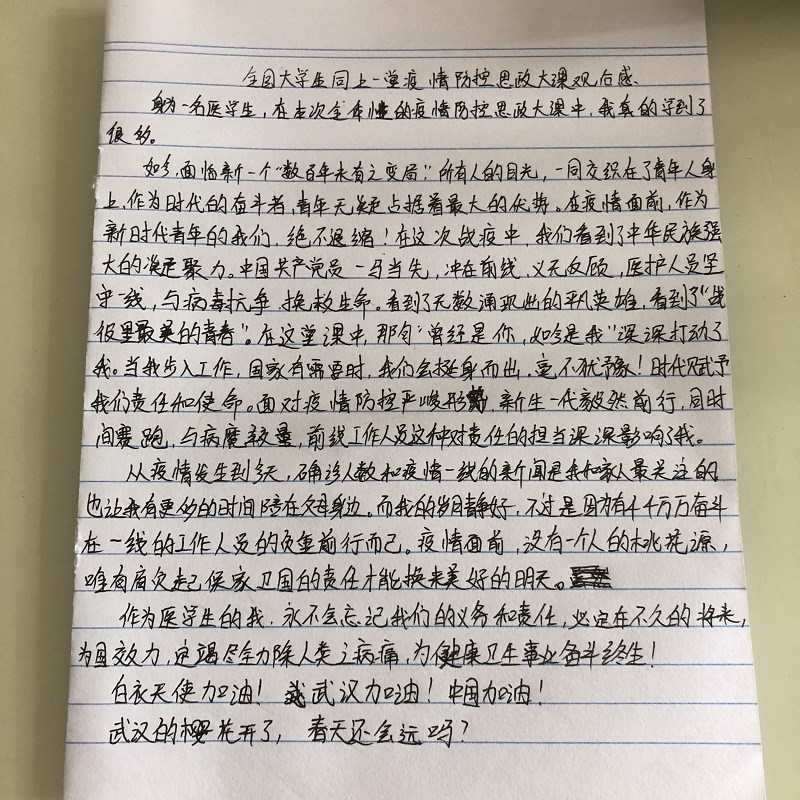 全国大学生同上一堂疫情防控思政大课观后感、
身为一名医学生，在本次全体性的疫情防控思政大课中，我真的学到了
很多。
如今，面临新一个“数百年未有之变局”，所有人的目光，一同交织在了青年人身
上，作为时代的奋斗者，青年无疑占据着最大的优势。在疫情面前，作为
新时代青年的我们，绝不退缩！在这次战疫中，我们看到了中华民族强
大的凝聚力。中国共产党员一马当先，冲在前线，义无反顾，医护人员坚
守一线，与病毒抗争，换救生命。看到了无数涌现出的平凡英雄，看到了“战
役里最美的青春”。在这堂课中，那句“曾经是你，如今是我”深深打动了
我。当我步入工作，国家有需要时，我们会挺身而出，毫不犹豫！时代赋予
我们责任和使命。面对疫情防控严峻形势，新生一代毅然前行，同时
间赛跑，与病魔较量，前线工作人员这种对责任的担当深深影响了我。
从疫情发生到今天，确诊人数和疫情一线的新闻是我和家人最关注的，
也让我有更多的时间陪在父母身边。而我的岁月静好，不过是因为有千千万万奋斗
在一线的工作人员的负重前行而已。疫情面前，没有一个人的桃花源，
唯有肩负起保家卫国的责任才能换来美好的明天。
作为医学生的我，永不会忘记我们的义务和责任，必定在不久的将来，
为国效力，定竭尽全力除人类之病痛，为健康卫生事业奋斗终生！
白衣天使加油！武汉加油！中国加油！
武汉的樱花开了，春天还会远吗？